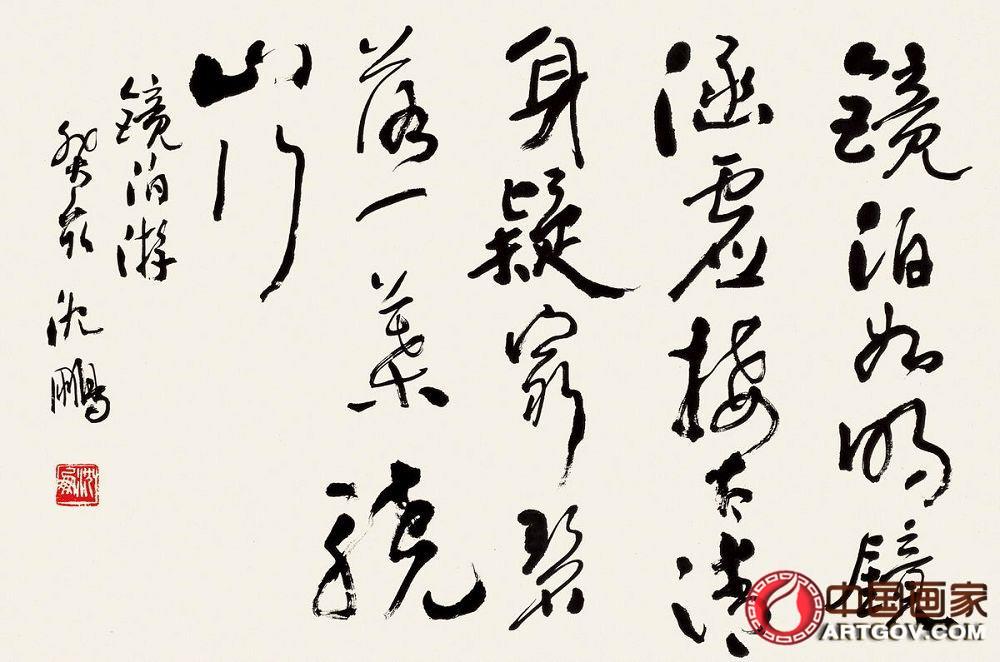 镜泊如明镜
涵虚接太清
身疑穷碧
落一叶绕
山行
镜泊游
癸亥 沈鹏
中国画家
ARTGOV.COM